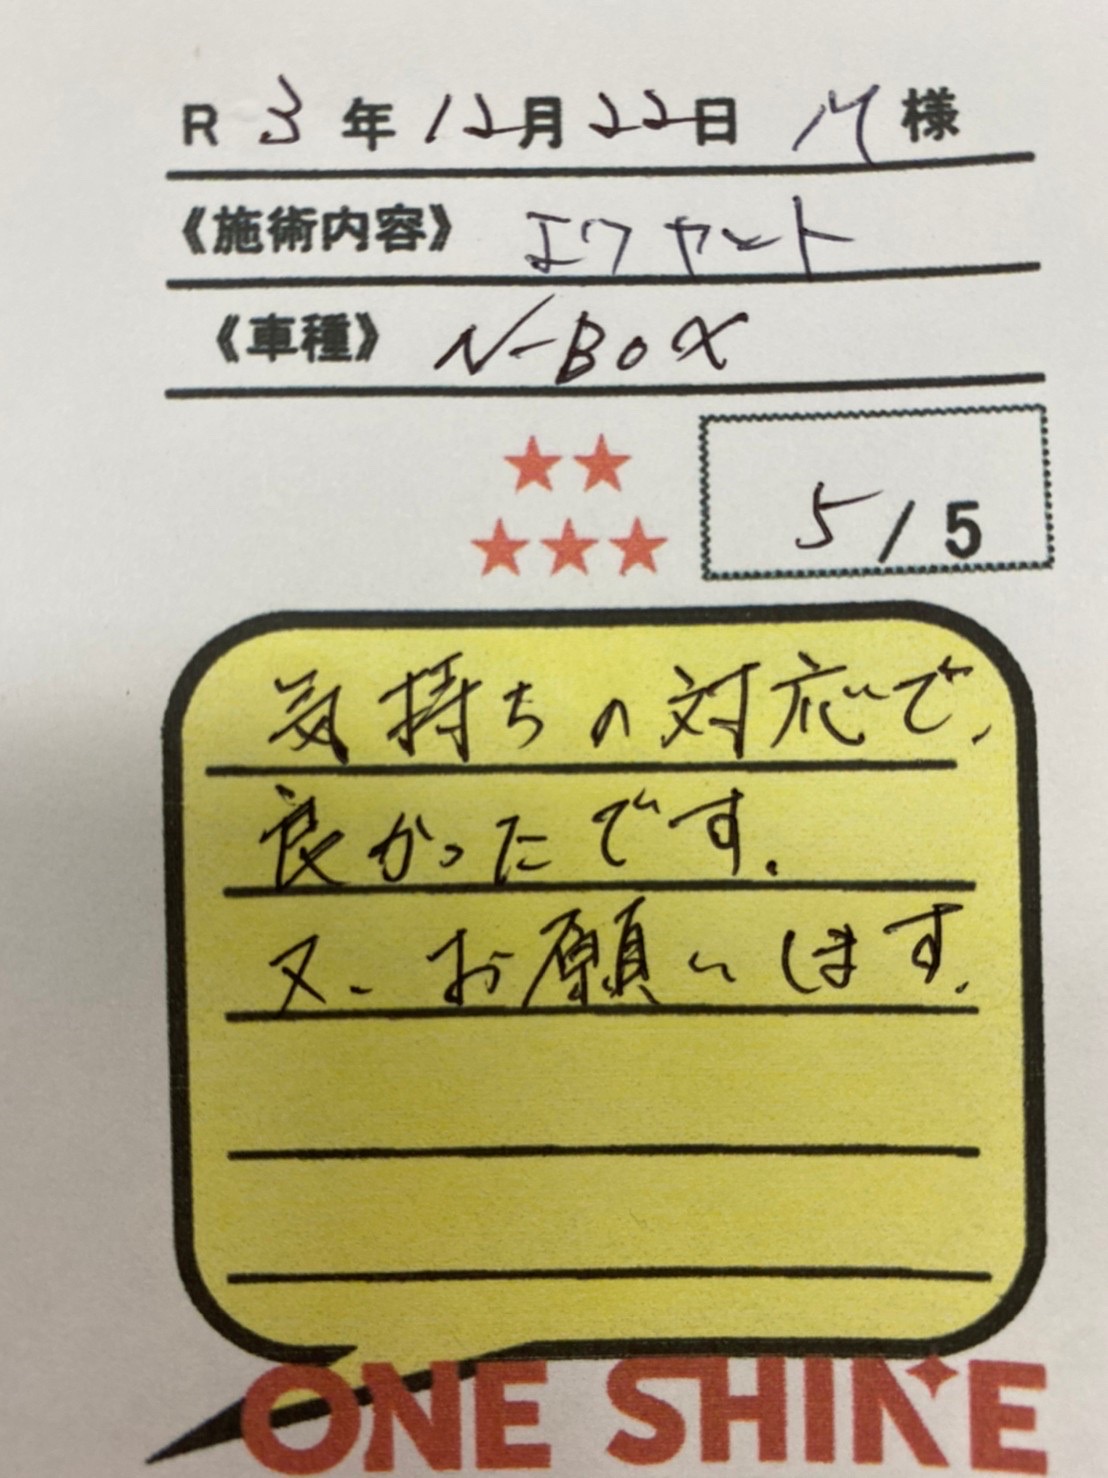 R 3年12月22日 M様
《施術内容》 エクセレント
《車種》 N-BOX
5/5
気持ちの対応で、
良かったです。
又、お願いします。
ONE SHINE